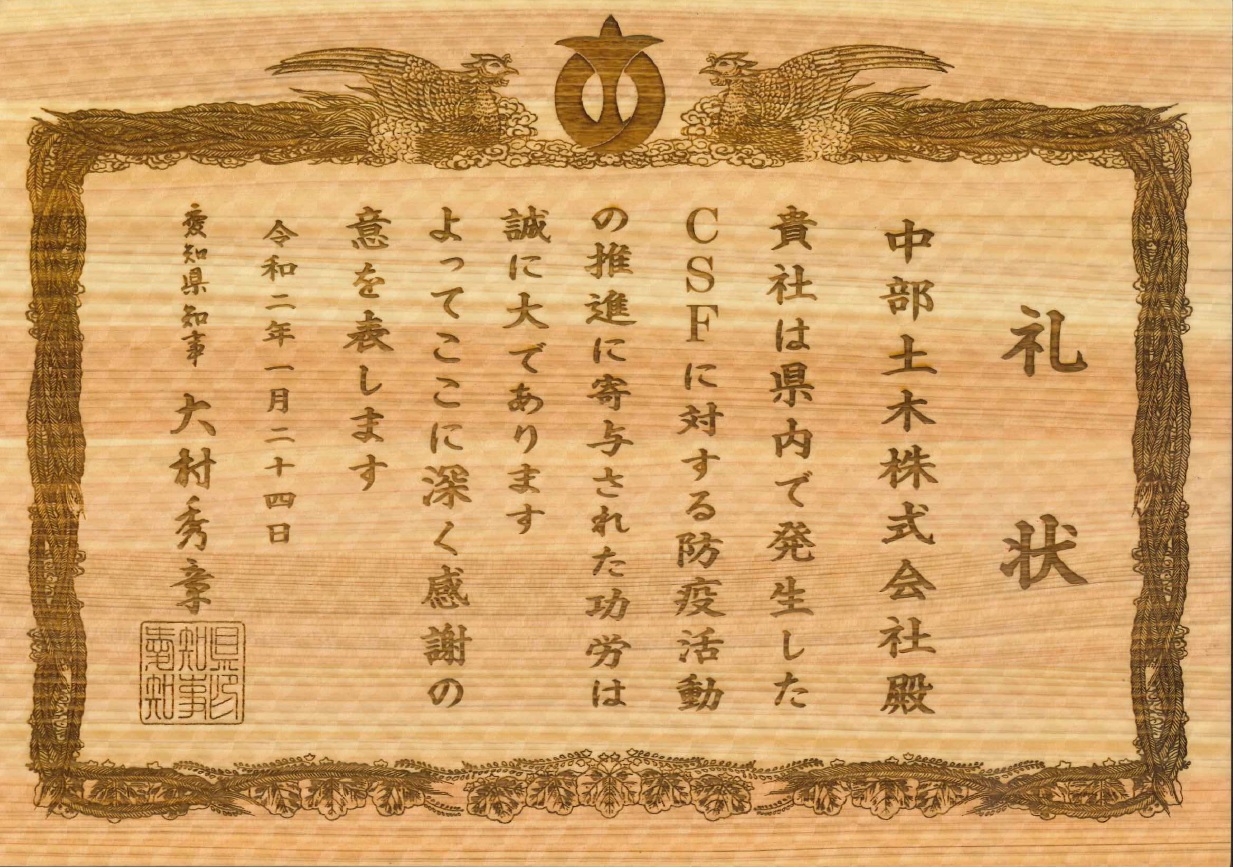 礼状
中部土木株式会社殿
貴社は県内で発生した
CSFに対する防疫活動
の推進に寄与された功労は
誠に大であります
よってここに深く感謝の
意を表します
令和二年一月二十四日
愛知県知事 大村秀章